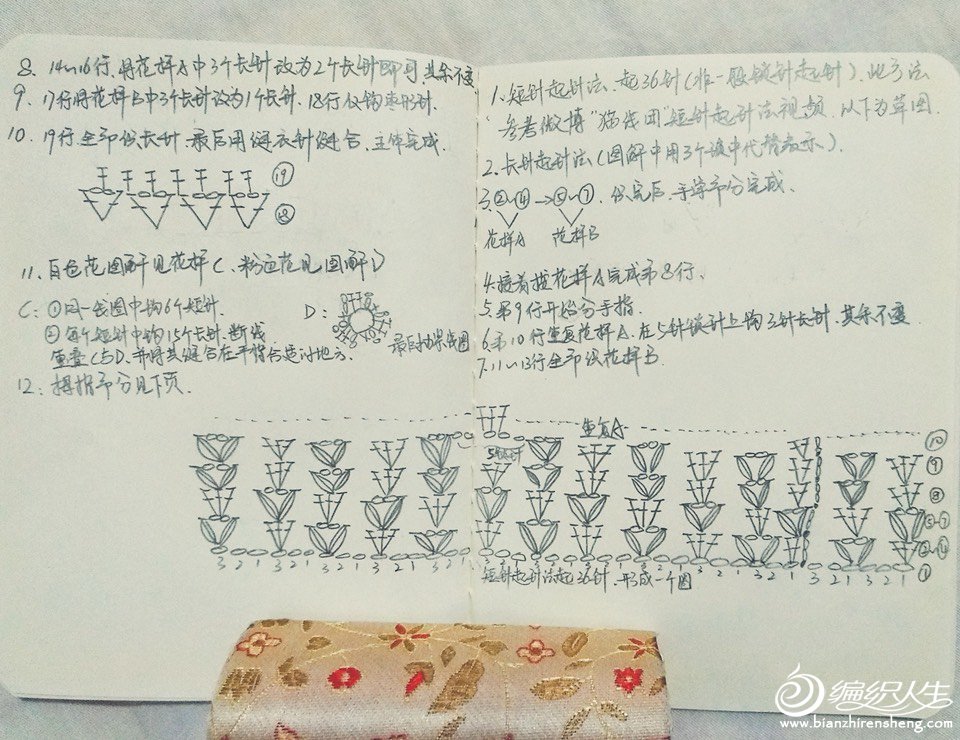 8. 14~16行,将花样A中3个长针改为2个长针即可,其余不变
9. 17行将花样B中3个长针改为1个长针. 18行仅钩枣形针.
10. 19行全部做长针. 最后用缝衣针缝合. 主体完成.
⑲
⑱
11. 白色花图解见花样C、粉色花见图解D
C: ①同一线圈中钩6个短针. D:
②每个短针中钩15个长针. 断线
重叠C与D, 并将其缝合在手背合适的地方.
最后抽紧线圈
12. 拇指部分见下页.
1. 短针起针法、起36针(非一般锁针起针). 此方法
参考微博"猫线团"短针起针法视频. 以下为草图.
2. 长针起针法(图解中用3个锁针代替表示).
3. ②~④→⑤~⑦. 做完后, 手掌部分完成.
花样A 花样B
4. 接着按花样A完成第8行.
5. 第9行开始分手指.
6. 第10行重复花样A. 在5针锁针上钩3针长针. 其余不变
7. 11~13行全部做花样B.
重复A
⑩
5针锁针
⑨
⑧
⑤~⑦
②~④
①
3 2 1 3 2 1 3 2 1 3 2 1
短针起针法起36针, 形成一个圈
编织人生
www.bianzhirensheng.com